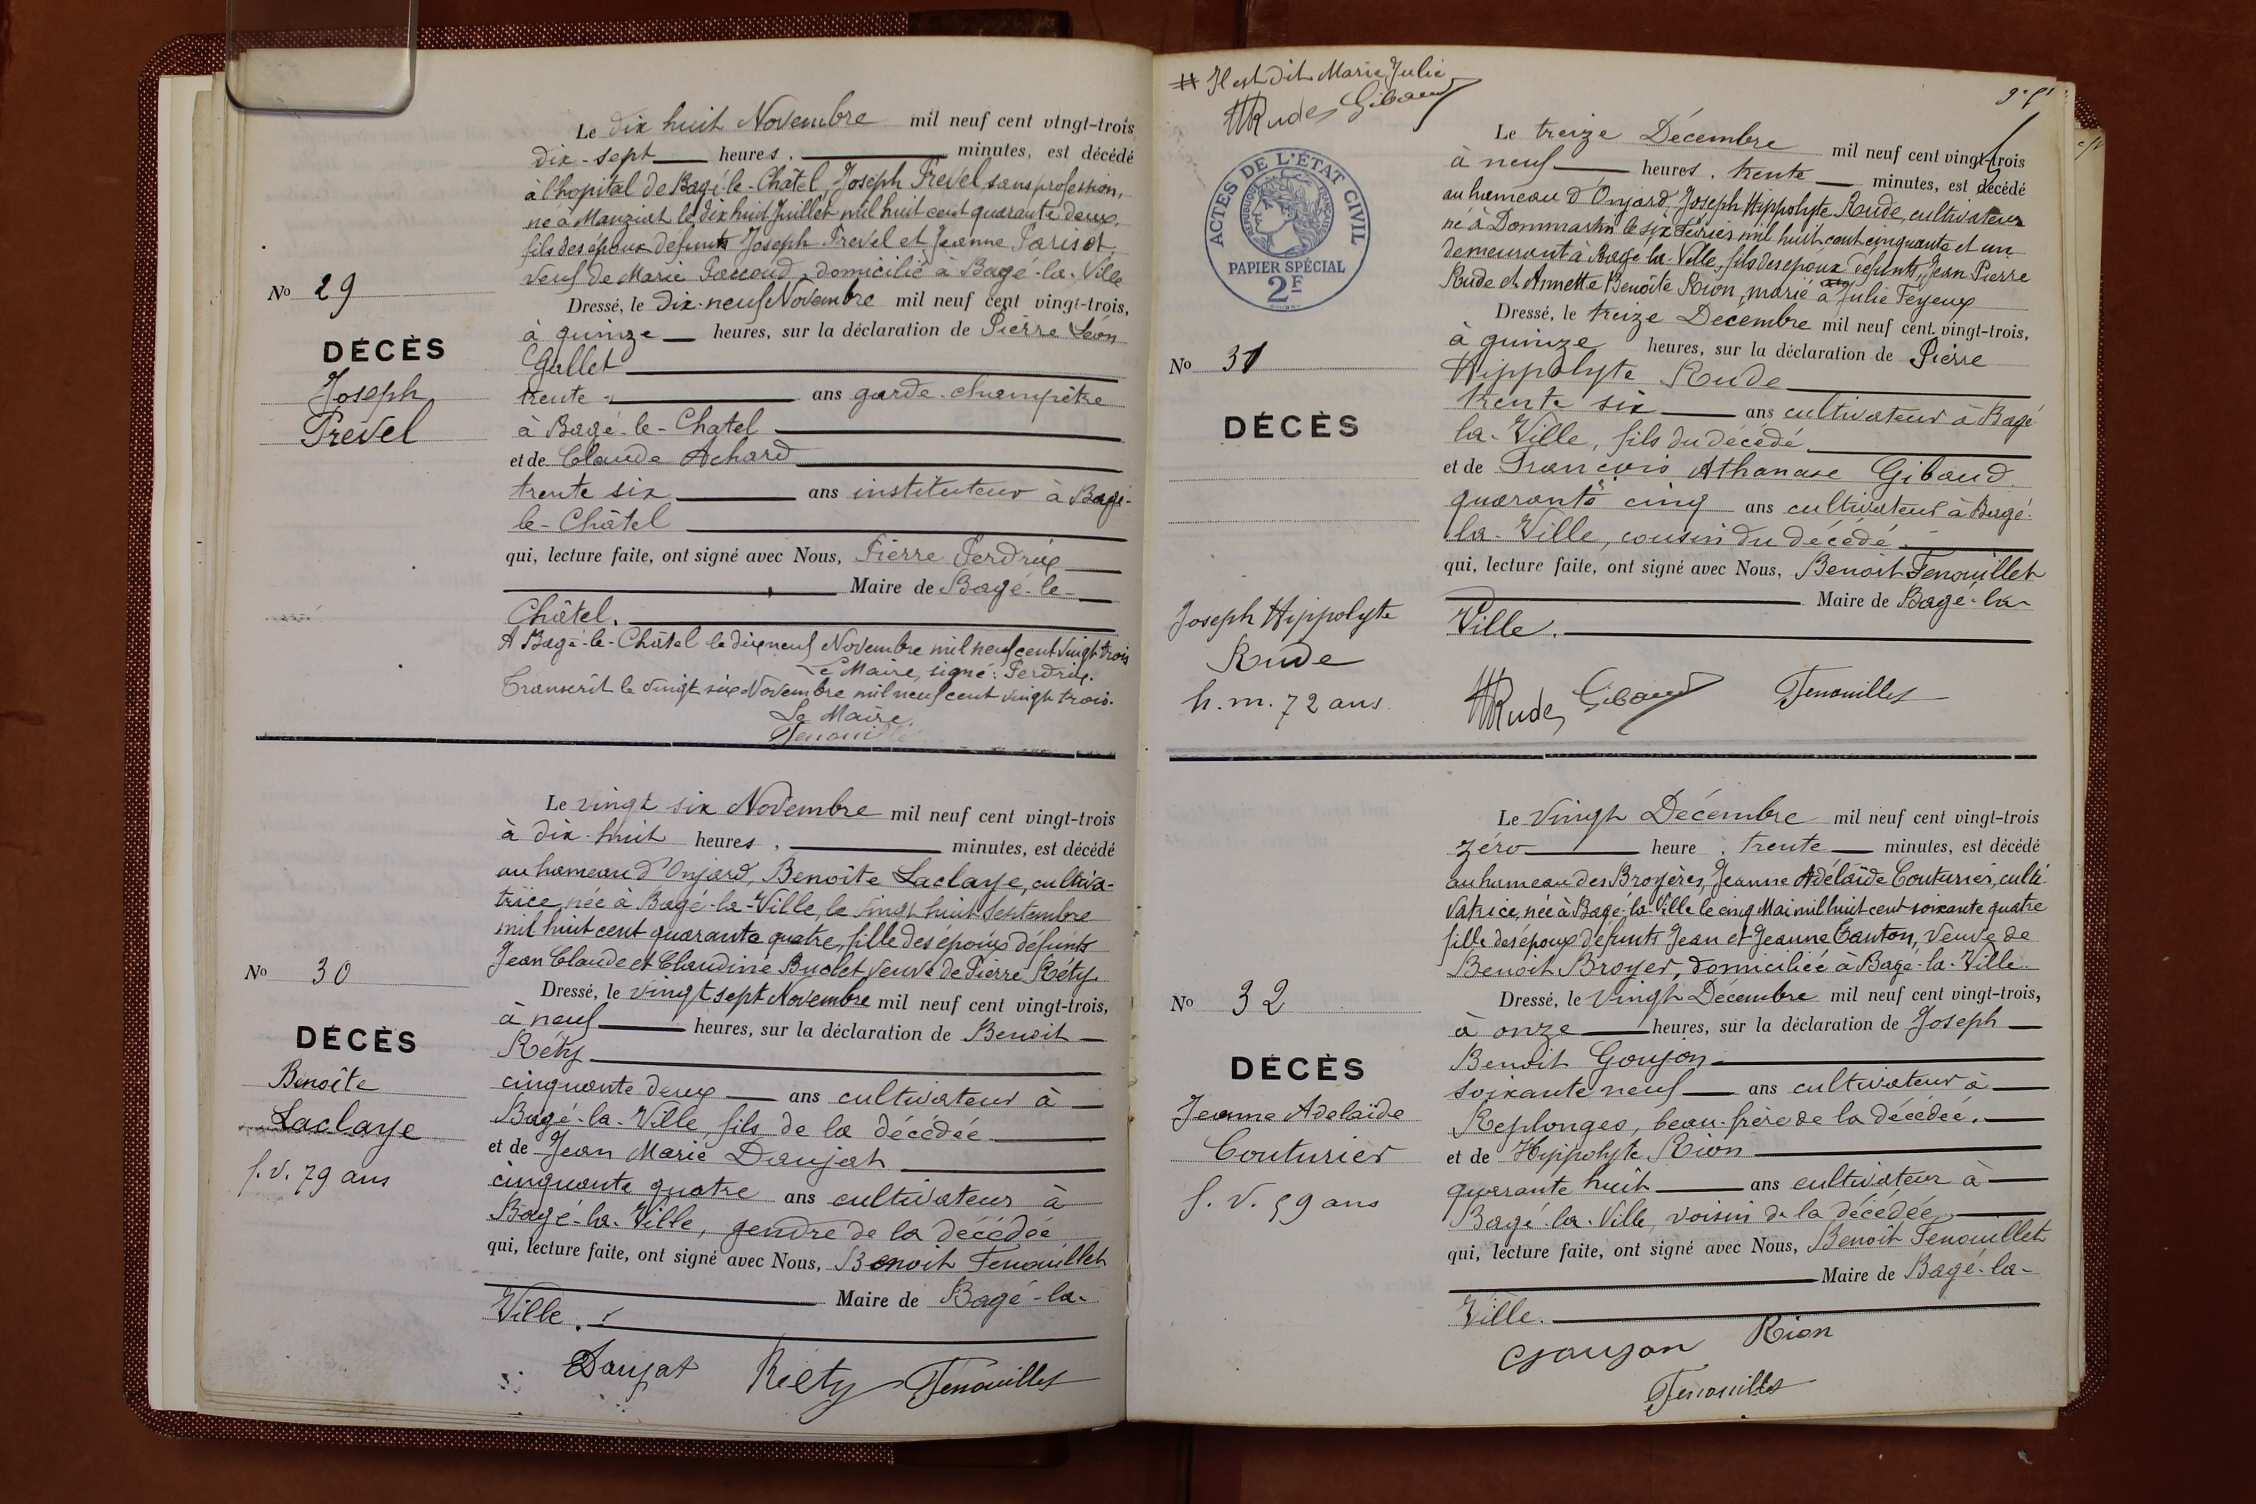 Le dix huit Novembre mil neuf cent vingt-trois
dix-sept heures, minutes, est décédé
à l'hopital de Bagé-le-Châtel, Joseph Prevel, sans profession,
né à Manziat le dix huit Juillet mil huit cent quarante deux,
fils des époux défunts Joseph Prevel et Jeanne Parisot
veuf de Marie Paccoud, domicilié à Bagé-la-Ville
No 29
Dressé, le dix-neuf Novembre mil neuf cent vingt-trois,
à quinze heures, sur la déclaration de Pierre Léon
DÉCÈS
Gallet
Joseph
trente ans garde-champêtre
Prevel
à Bagé-le-Chatel
et de Claude Achard
trente six ans instituteur à Bagé-
le-Châtel
qui, lecture faite, ont signé avec Nous, Pierre Perdrix
Maire de Bagé-le-
Châtel.
A Bagé-le-Châtel le dix neuf Novembre mil neuf cent vingt trois
Le Maire, signé: Perdrix.
Transcrit le vingt six Novembre mil neuf cent vingt trois.
Le Maire.
Fenouillet
Le vingt six Novembre mil neuf cent vingt-trois
à dix-huit heures, minutes, est décédé
au hameau d'Onjard, Benoîte Laclaye, cultiva-
trice, née à Bagé-la-Ville, le vingt huit Septembre
mil huit cent quarante quatre, fille des époux défunts
Jean Claude et Claudine Buclet, veuve de Pierre Réty
No 30
Dressé, le vingt sept Novembre mil neuf cent vingt-trois,
à neuf heures, sur la déclaration de Benoit
DÉCÈS
Réty
Benoîte
cinquante deux ans cultivateur à
Laclaye
Bagé-la-Ville, fils de la décédée
et de Jean Marie Daujat
f. v. 79 ans
cinquante quatre ans cultivateur à
Bagé-la-Ville, gendre de la décédée
qui, lecture faite, ont signé avec Nous, Benoit Fenouillet
Maire de Bagé-la-
Ville.
Daujat Réty Fenouillet
# Il est dit Marie Julie
HRude Gibaud
ACTES DE L'ÉTAT CIVIL
RÉPUBLIQUE FRANÇAISE
PAPIER SPÉCIAL
2F
Le treize Décembre mil neuf cent vingt-trois
à neuf heures, trente minutes, est décédé
au hameau d'Onjard, Joseph Hippolyte Rude, cultivateur
né à Dommartin le six Février mil huit cent cinquante et un
demeurant à Bagé-la-Ville, fils des époux défunts, Jean Pierre
Rude et Annette Benoîte Rion, marié à # Julie Feyeux
Dressé, le treize Décembre mil neuf cent vingt-trois,
No 31
à quinze heures, sur la déclaration de Pierre
Hippolyte Rude
DÉCÈS
trente six ans cultivateur à Bagé
la-Ville, fils du décédé
et de François Athanase Gibaud
quarante cinq ans cultivateur à Bagé-
la-Ville, cousin du décédé.
qui, lecture faite, ont signé avec Nous, Benoit Fenouillet
Maire de Bagé-la-
Joseph Hippolyte
Ville.
Rude
h. m. 72 ans
HRude Gibaud Fenouillet
Le vingt Décembre mil neuf cent vingt-trois
zéro heure, trente minutes, est décédé
au hameau des Broyères, Jeanne Adélaïde Couturier, culti-
vatrice, née à Bagé-la-Ville le cinq Mai mil huit cent soixante quatre
fille des époux défunts Jean et Jeanne Tanton, veuve de
Benoit Broyer, domiciliée à Bagé-la-Ville.
No 32
Dressé, le vingt Décembre mil neuf cent vingt-trois,
à onze heures, sur la déclaration de Joseph
DÉCÈS
Benoit Goujon
soixante neuf ans cultivateur à
Jeanne Adelaïde
Replonges, beau-frère de la décédée.
Couturier
et de Hippolyte Rion
f. v. 59 ans
quarante huit ans cultivateur à
Bagé-la-Ville, voisin de la décédée
qui, lecture faite, ont signé avec Nous, Benoit Fenouillet
Maire de Bagé-la-
Ville.
Goujon Rion
Fenouillet